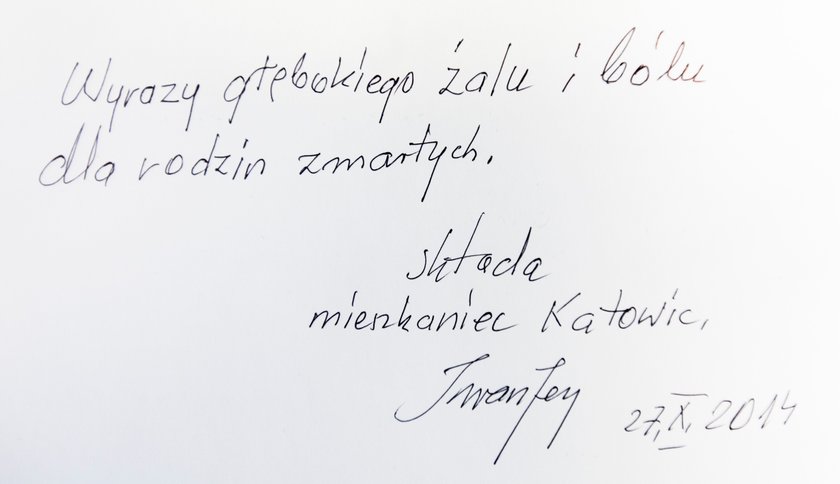 Wyrazy głębokiego żalu i bólu
dla rodzin zmarłych.
składa
mieszkaniec Katowic,
27.X.2014